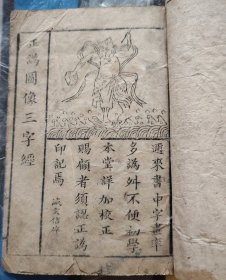 正譌圖像三字經
邇來書中字畫率
多譌舛不便初學
本堂詳加校正
賜顧者須認正譌
印記焉